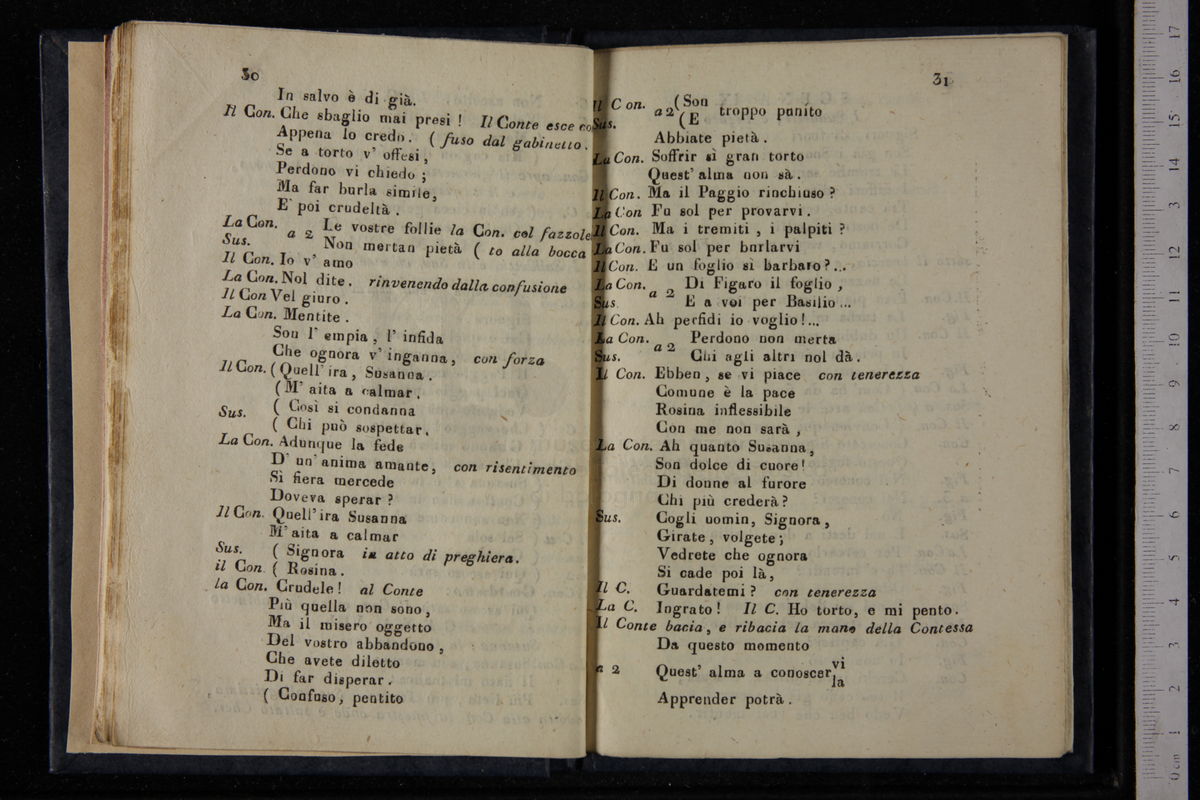 30
In salvo è di già.
Il Con. Che sbaglio mai presi ! Il Conte esce co
Appena lo credo. ( fuso dal gabinetto.
Se a torto v' offesi,
Perdono vi chiedo ;
Ma far burla simile,
E' poi crudeltà .
La Con. a 2 Le vostre follie la Con. col fazzole
Sus. Non mertan pietà ( to alla bocca
Il Con. Io v' amo
La Con. Nol dite . rinvenendo dalla confusione
Il Con Vel giuro .
La Con. Mentite .
Son l' empia , l' infida
Che ognora v' inganna, con forza
Il Con. ( Quell' ira , Susanna .
( M' aita a calmar .
Sus. ( Così si condanna
( Chi può sospettar.
La Con. Adunque la fede
D' un' anima amante, con risentimento
Sì fiera mercede
Doveva sperar ?
Il Con. Quell' ira Susanna
M' aita a calmar
Sus. ( Signora in atto di preghiera.
il Con. ( Rosina .
la Con. Crudele ! al Conte
Più quella non sono,
Ma il misero oggetto
Del vostro abbandono ,
Che avete diletto
Di far disperar .
( Confuso, pentito
31
Il Con. a 2 ( Son
Sus. ( E troppo punito
Abbiate pietà .
La Con. Soffrir sì gran torto
Quest' alma non sà .
Il Con. Ma il Paggio rinchiuso ?
La Con Fu sol per provarvi .
Il Con. Ma i tremiti , i palpiti ?
La Con. Fu sol per burlarvi
Il Con. E un foglio sì barbaro ?...
La Con. a 2 Di Figaro il foglio ,
Sus. E a voi per Basilio ...
Il Con. Ah perfidi io voglio !...
La Con. a 2 Perdono non merta
Sus. Chi agli altri nol dà .
Il Con. Ebben , se vi piace con tenerezza
Comune è la pace
Rosina inflessibile
Con me non sarà ,
La Con. Ah quanto Susanna,
Son dolce di cuore !
Di donne al furore
Chi più crederà ?
Sus. Cogli uomin, Signora ,
Girate , volgete ;
Vedrete che ognora
Si cade poi là,
Il C. Guardatemi ? con tenerezza
La C. Ingrato ! Il C. Ho torto, e mi pento.
Il Conte bacia, e ribacia la mano della Contessa
Da questo momento
a 2 Quest' alma a conoscer vi
la
Apprender potrà .
0 cm 1 2 3 4 5 6 7 8 9 10 11 12 13 14 15 16 17